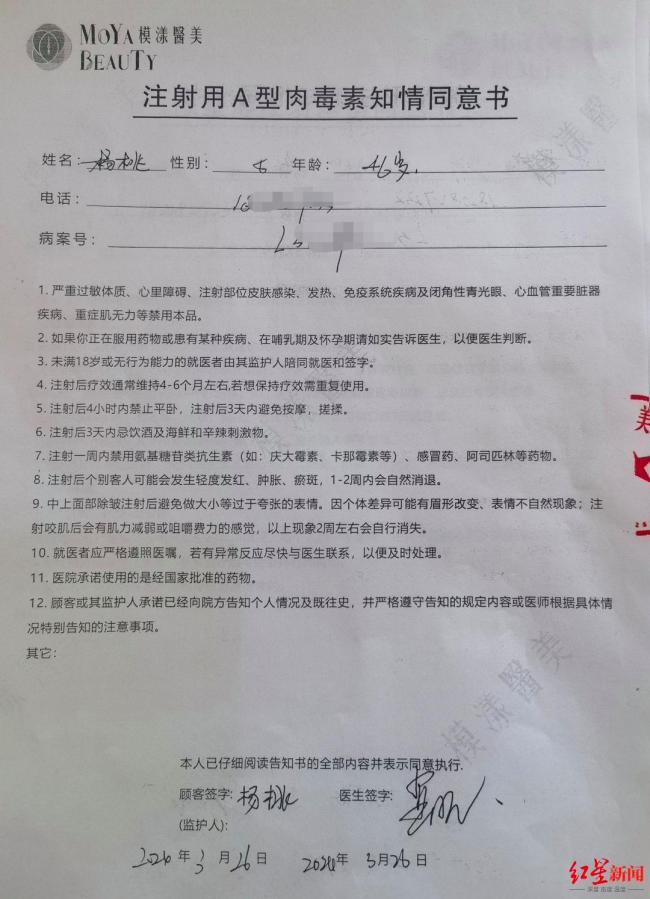 MOYA 模漾醫美
BEAUTY
注射用A型肉毒素知情同意书
姓名: 杨桃 性别: 女 年龄: 46岁.
电话:
病案号:
1. 严重过敏体质、心里障碍、注射部位皮肤感染、发热、免疫系统疾病及闭角性青光眼、心血管重要脏器
疾病、重症肌无力等禁用本品。
2. 如果你正在服用药物或患有某种疾病、在哺乳期及怀孕期请如实告诉医生，以便医生判断。
3. 未满18岁或无行为能力的就医者由其监护人陪同就医和签字。
4. 注射后疗效通常维持4-6个月左右,若想保持疗效需重复使用。
5. 注射后4小时内禁止平卧，注射后3天内避免按摩，搓揉。
6. 注射后3天内忌饮酒及海鲜和辛辣刺激物。
7. 注射一周内禁用氨基糖苷类抗生素（如：庆大霉素、卡那霉素等）、感冒药、阿司匹林等药物。
8. 注射后个别客人可能会发生轻度发红、肿胀、瘀斑，1-2周内会自然消退。
9. 中上面部除皱注射后避免做大小等过于夸张的表情。因个体差异可能有眉形改变、表情不自然现象；注
射咬肌后会有肌力减弱或咀嚼费力的感觉，以上现象2周左右会自行消失。
10. 就医者应严格遵照医嘱，若有异常反应尽快与医生联系，以便及时处理。
11. 医院承诺使用的是经国家批准的药物。
12. 顾客或其监护人承诺已经向院方告知个人情况及既往史，并严格遵守告知的规定内容或医师根据具体情
况特别告知的注意事项。
其它:
模漾醫美
模漾醫美
本人已仔细阅读告知书的全部内容并表示同意执行.
顾客签字: 杨桃 医生签字:
(监护人):
年3月26日 年3月26日
红星新闻
深度 态度 温度